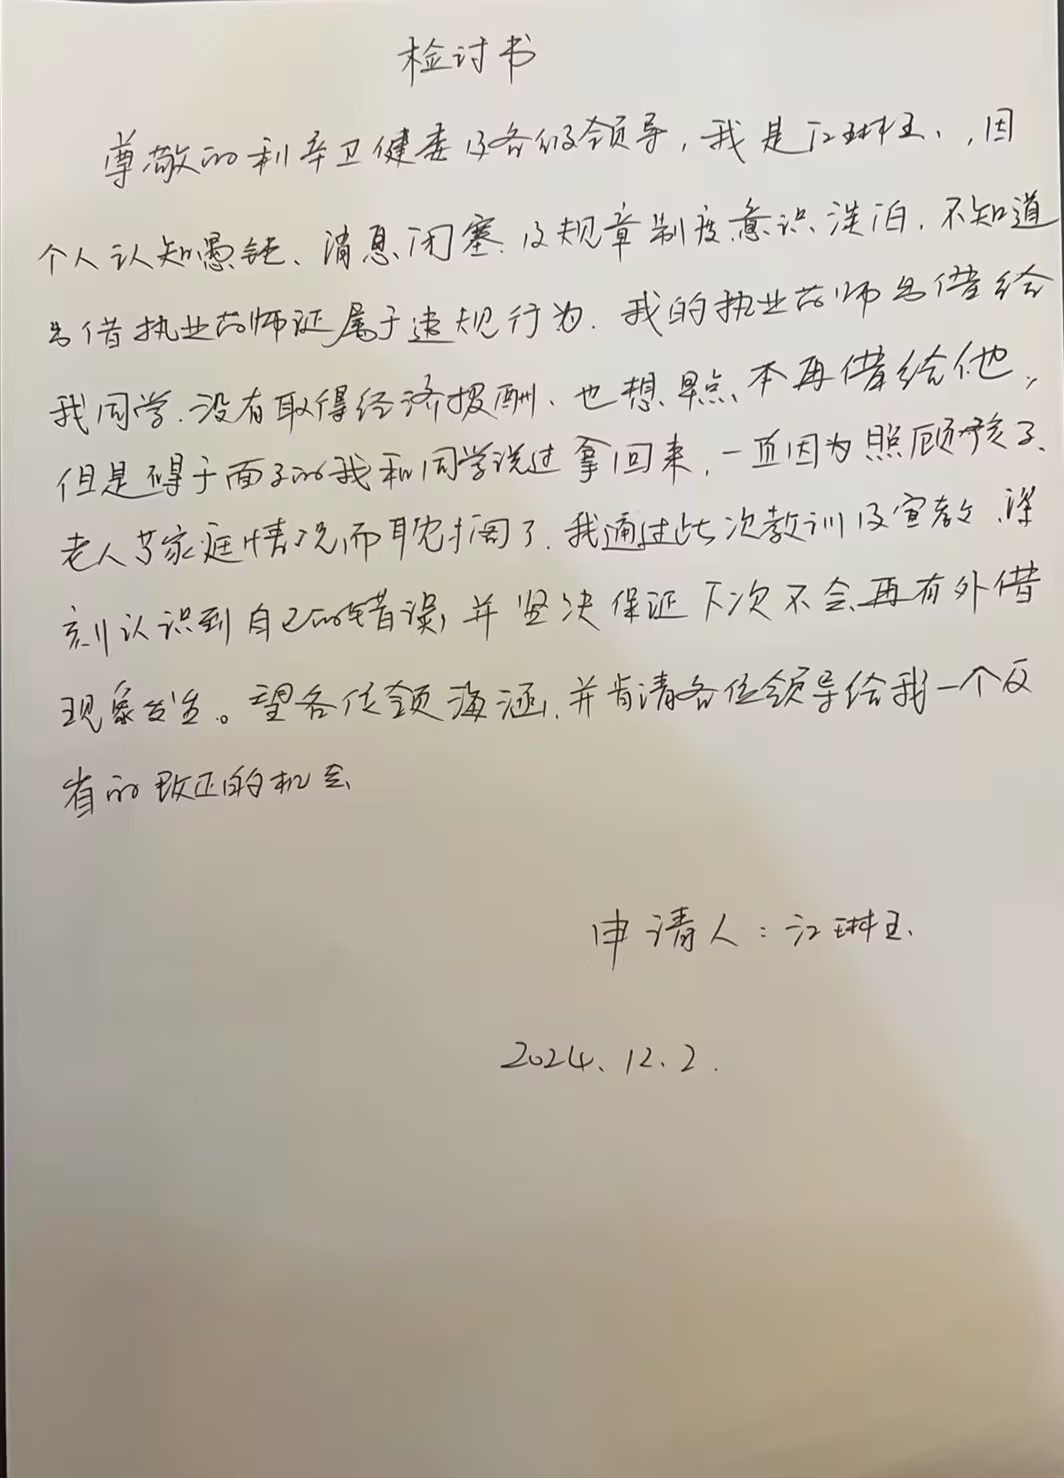 检讨书
尊敬的利辛卫健委及各级领导，我是江琳玉、，因
个人认知愚钝、消息闭塞、及规章制度意识淡泊．不知道
出借执业药师证属于违规行为．我的执业药师出借给
我同学．没有取得经济报酬、也想早点、本再借给他，
但是碍于面子的我和同学说过拿回来，一直因为照顾孩子、
老人等家庭情况而耽搁了．我通过此次教训及宣教．深
刻认识到自己的错误，并坚决保证下次不会再有外借
现象发生。望各位领海涵，并肯请各位领导给我一个反
省的改正的机会
申请人：江琳玉、
2024、12、2．